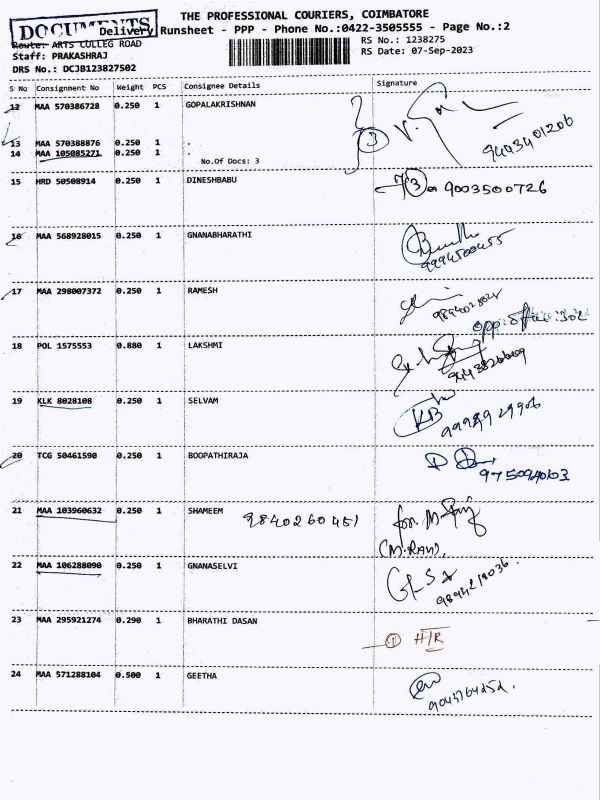 THE PROFESSIONAL COURIERS, COIMBATORE
DOCUMENTS
Delivery Runsheet - PPP - Phone No.:0422-3505555 - Page No.:2
Route: ARTS COLLEG ROAD
RS No.: 1238275
Staff: PRAKASHRAJ
RS Date: 07-Sep-2023
DRS No.: DCJB123827502
S No Consignment No Weight PCS Consignee Details Signature
12 MAA 570386728 0.250 1 GOPALAKRISHNAN
13 MAA 570388876 0.250 1 .
14 MAA 105085271 0.250 1 .
3
9493401206
No.Of Docs: 3
15 HRD 50508914 0.250 1 DINESHBABU
9003500726
16 MAA 568928015 0.250 1 GNANABHARATHI
9994500455
17 MAA 298007372 0.250 1 RAMESH
18 POL 1575553 0.880 1 LAKSHMI
19 KLK 8028108 0.250 1 SELVAM
KB
20 TCG 50461590 0.250 1 BOOPATHIRAJA
21 MAA 103960632 0.250 1 SHAMEEM 9840260451
22 MAA 106288090 0.250 1 GNANASELVI
23 MAA 295921274 0.290 1 BHARATHI DASAN
1 H/R
24 MAA 571288104 0.500 1 GEETHA